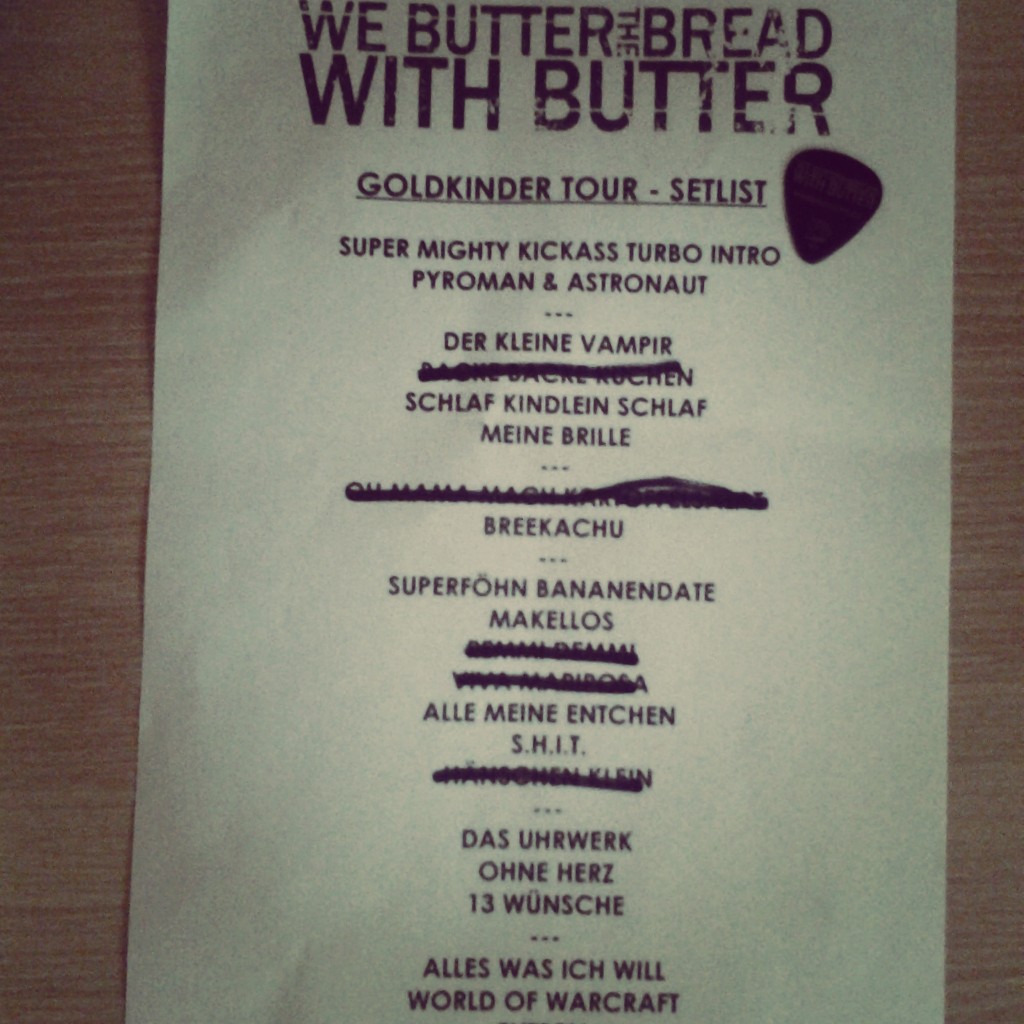 WE BUTTER THE BREAD
WITH BUTTER
GOLDKINDER TOUR - SETLIST
SUPER MIGHTY KICKASS TURBO INTRO
PYROMAN & ASTRONAUT
---
DER KLEINE VAMPIR
BACKE BACKE KUCHEN
SCHLAF KINDLEIN SCHLAF
MEINE BRILLE
---
OH MAMA MACH KARTOFFELSALAT
BREEKACHU
---
SUPERFÖHN BANANENDATE
MAKELLOS
REMMI DEMMI
VIVA MARIPOSA
ALLE MEINE ENTCHEN
S.H.I.T.
HÄNSCHEN KLEIN
---
DAS UHRWERK
OHNE HERZ
13 WÜNSCHE
---
ALLES WAS ICH WILL
WORLD OF WARCRAFT